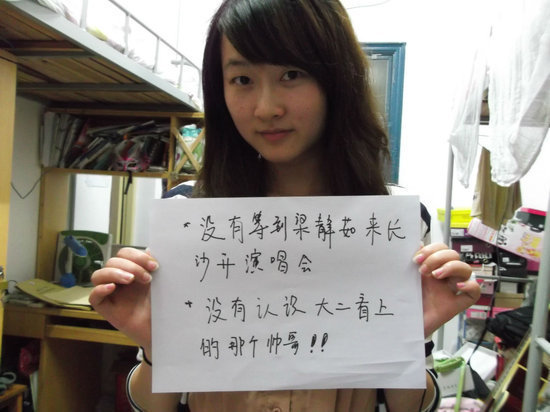 * 没有等到梁静茹来长
沙开演唱会
* 没有认识大二看上
的那个帅哥!!